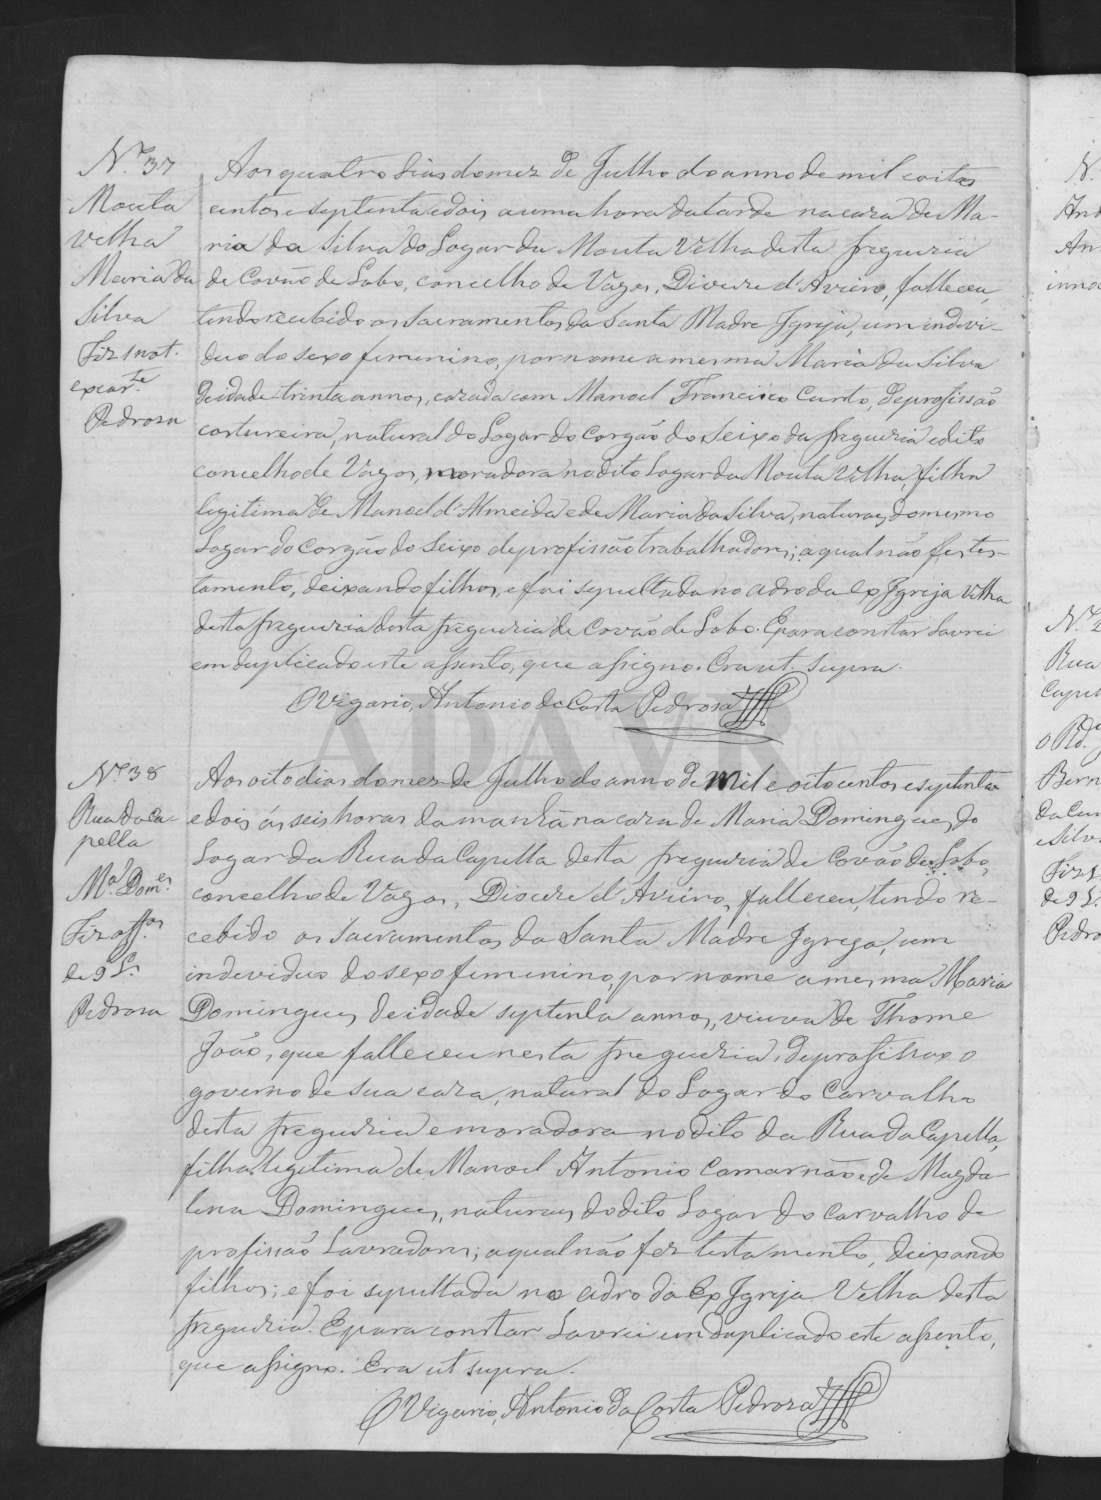 N.º 37
Mouta
velha
Maria da
Silva
Fiz 1 not.
e cart.te
Pedrosa
Aos quatro dias do mez de Julho do anno de mil e oito
centos e septenta e dois a uma hora da tarde na caza de Ma-
ria da Silva do Logar da Mouta Velha desta freguezia
de Covão de Lobo, concelho de Vagos, Diocese d'Aveiro, falleceu,
tendo recebido os sacramentos da Santa Madre Igreja, um indivi-
duo do sexo femenino, por nome a mesma Maria da Silva
de idade trinta annos, cazada com Manoel Francisco Curto, de profissão
costureira, natural do Logar do Corgão do Seixo da freguezia e dito
concelho de Vagos, moradora no dito Logar da Mouta Velha, filha
legitima de Manoel d'Almeida e de Maria da Silva, naturaes do mesmo
Logar do Corgão do Seixo de profissão trabalhadores; a qual não fez tes-
tamento, deixando filhos, e foi sepultada no adro da ex Igreja Velha
desta freguezia desta freguezia de Covão de Lobo. E para constar lavrei
em duplicado este assento, que assigno. Era ut supra.
O Vigario, Antonio da Costa Pedrosa
ADAVR
N.º 38
Rua da Ca-
pella
M.ª Dom.es
Fiz off.os
de 9 L.s
Pedrosa
Aos oito dias do mez de Julho do anno de mil e oitocentos e septenta
e dois ás seis horas da manhã na caza de Maria Domingues do
Logar da Rua da Capella desta freguezia de Covão de Lobo,
concelho de Vagos, Diocese d'Aveiro, falleceu tendo re-
cebido os sacramentos da Santa Madre Igreja, um
individuo do sexo femenino, por nome a mesma Maria
Domingues, de idade septenta annos, viuva de Thome
João, que falleceu nesta freguezia, de profissão o
governo de sua caza, natural do Logar do Carvalho
desta freguezia e moradora no dito da Rua da Capella,
filha legitima de Manoel Antonio Camarnão e de Magda-
lena Domingues, naturaes do dito Logar do Carvalho de
profissão Lavradores; a qual não fez testamento, deixando
filhos; e foi sepultada no adro da ex Igreja Velha desta
freguezia. E para constar Lavrei em duplicado este assento,
que assigno. Era ut supra.
O Vigario, Antonio da Costa Pedrosa
N.
And
An
inno
N.º 2
Rua
Capel
o Rd.
Bern
da Cun
e Silv
Fiz 1
de 9 L.
Pedro